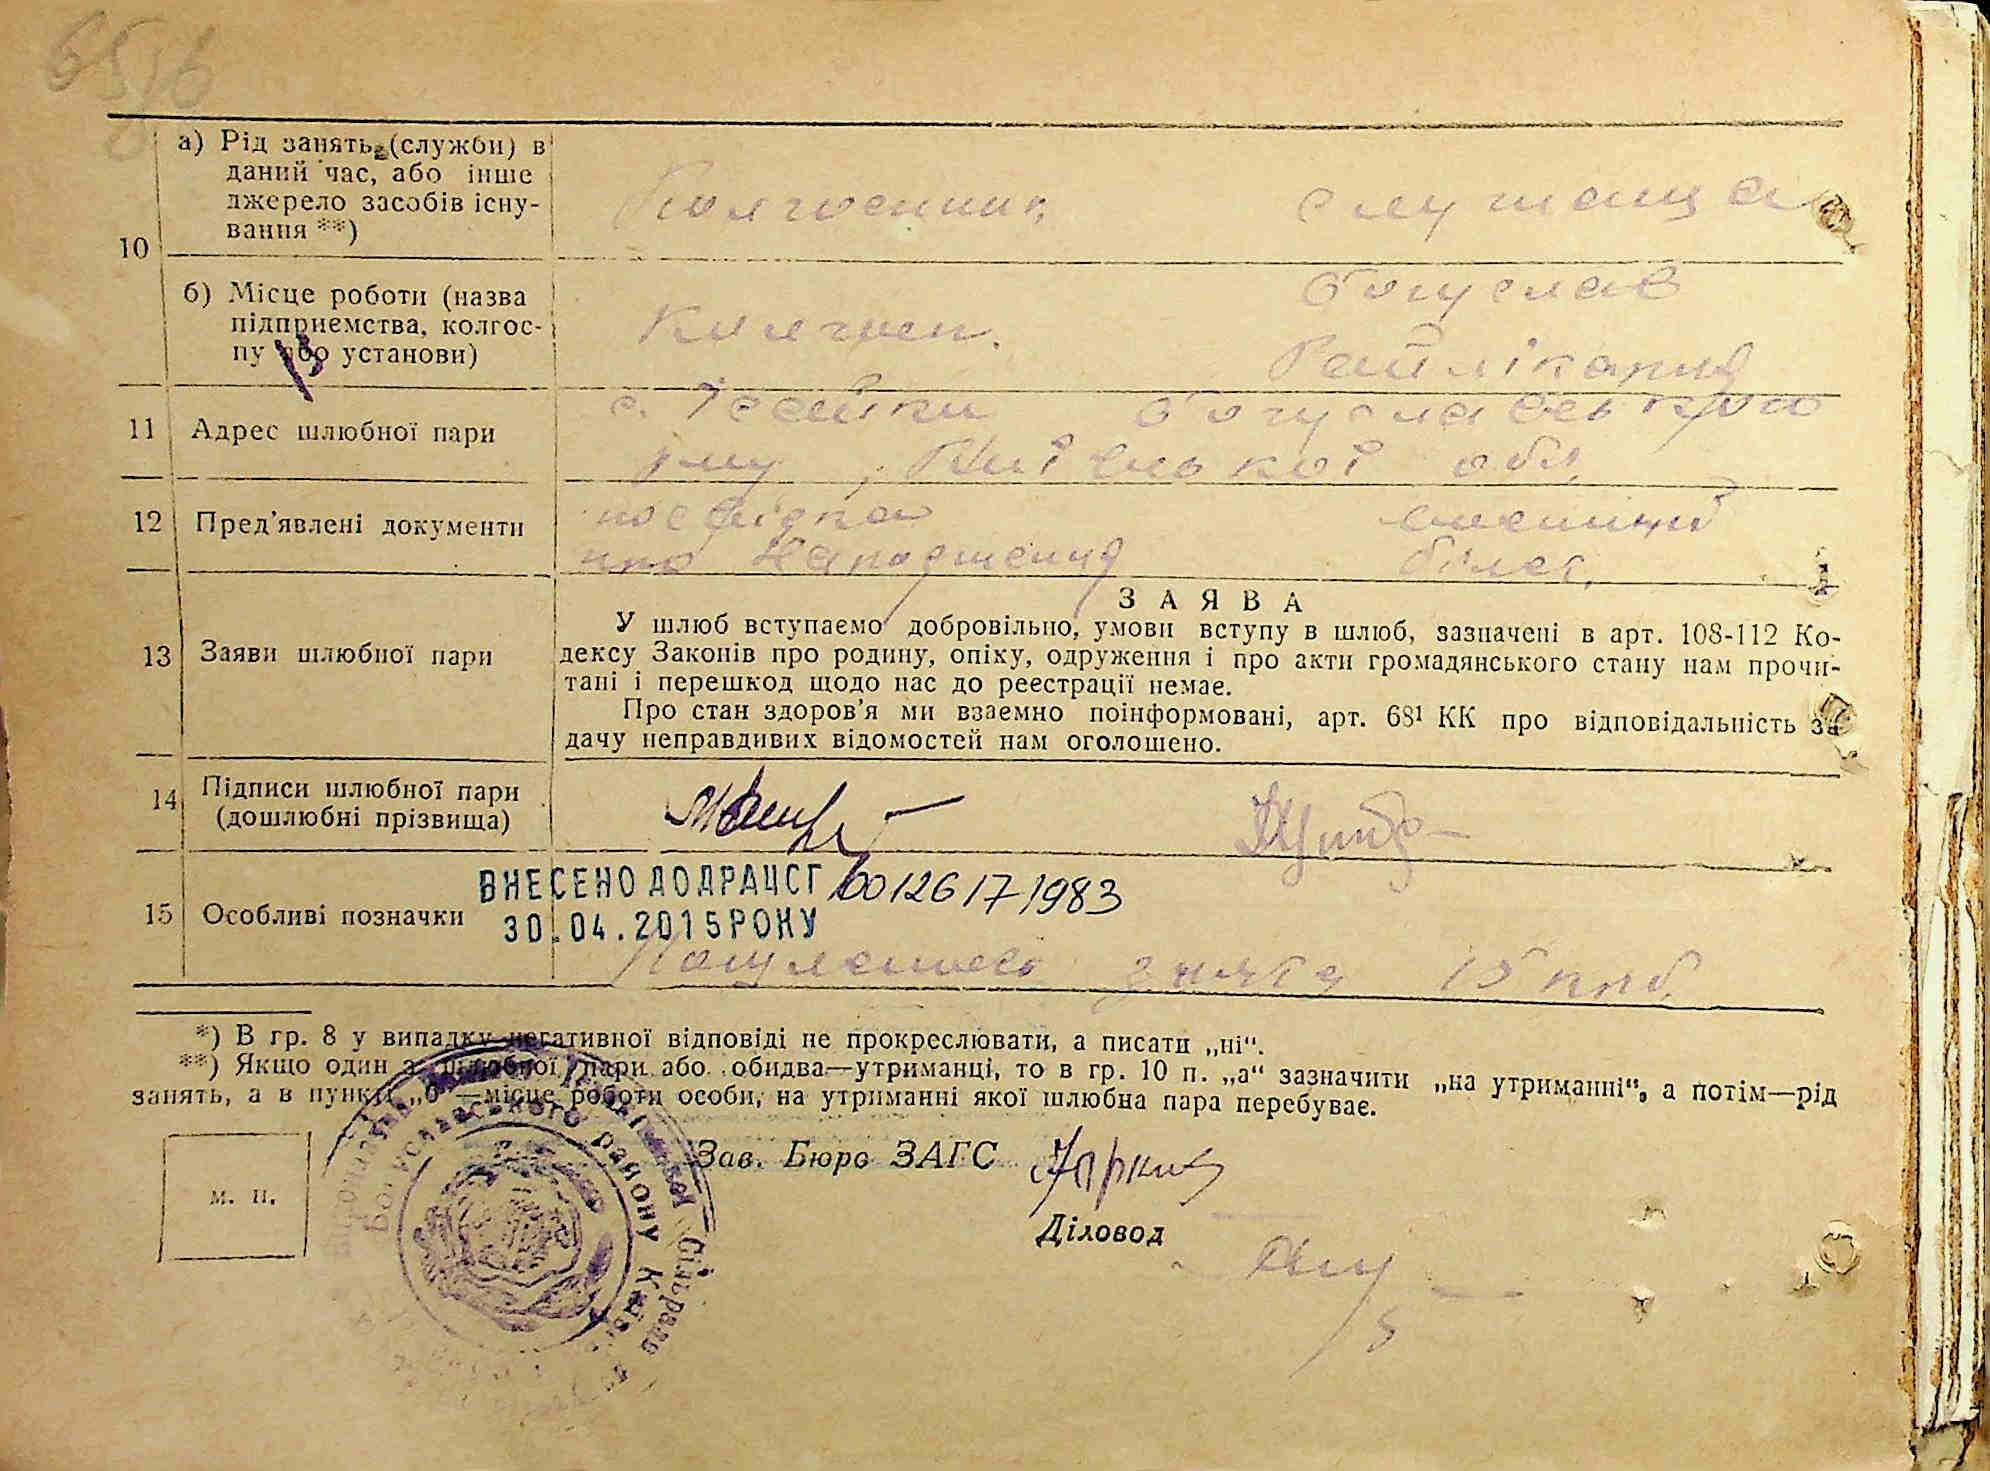 10
а) Рід занять (служби) в
даний час, або інше
джерело засобів існу-
вання **)
Колгоспник
служаща
б) Місце роботи (назва
підприємства, колгос-
пу або установи)
Колгосп.
богуслав
Райлікарня
11 Адрес шлюбної пари
с. Ісайки богуславського
р-ну, Київської обл.
12 Пред'явлені документи
посвідка
про народження
білет.
13 Заяви шлюбної пари
ЗАЯВА
У шлюб вступаємо добровільно, умови вступу в шлюб, зазначені в арт. 108-112 Ко-
дексу Законів про родину, опіку, одруження і про акти громадянського стану нам прочи-
тані і перешкод щодо нас до реестрації немає.
Про стан здоров'я ми взаємно поінформовані, арт. 68¹ КК про відповідальність за
дачу неправдивих відомостей нам оголошено.
14 Підписи шлюбної пари
(дошлюбні прізвища)
ВНЕСЕНО ДО ДРАЦСГ 00126171983
30.04.2015 РОКУ
15 Особливі позначки
знято 15 крб.
*) В гр. 8 у випадку негативної відповіді не прокреслювати, а писати „ні“.
**) Якщо один з шлюбної пари або обидва—утриманці, то в гр. 10 п. „а“ зазначити „на утриманні“, а потім—рід
занять, а в пункті „б“—місце роботи особи, на утриманні якої шлюбна пара перебуває.
м. п.
Зав. Бюро ЗАГС
Діловод
Богуславського району